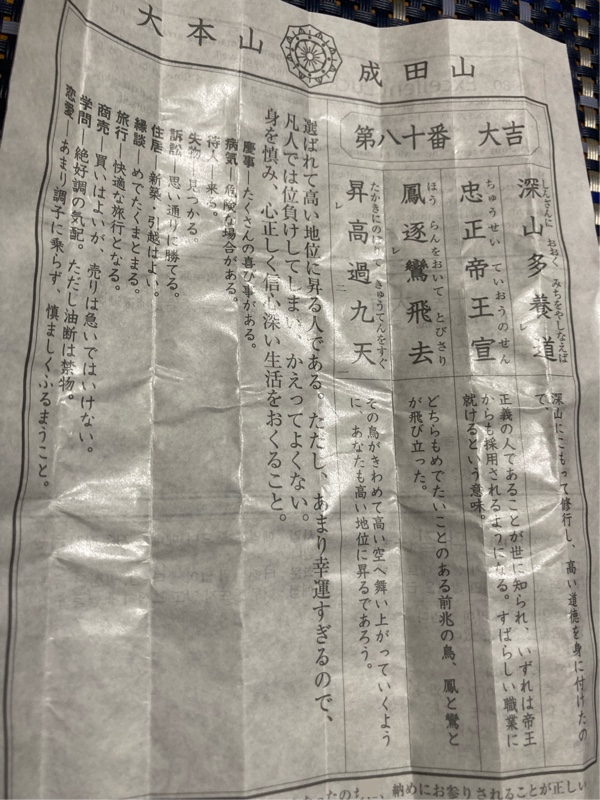 大本山 成田山
第八十番 大吉
深山多養道
しんざんに おおく みちをやしなえば
忠正帝王宣
ちゅうせい ていおうのせん
鳳逐鸞飛去
ほう らんをおいて とびさり
レ
昇高過九天
たかきにのぼりて きゅうてんをすぐ
レ 二 一
深山にこもって修行し、高い道徳を身に付けたの
で、
正義の人であることが世に知られ、いずれは帝王
からも採用されるようになる。すばらしい職業に
就けるという意味。
どちらもめでたいことのある前兆の鳥、鳳と鸞と
が飛び立った。
その鳥がきわめて高い空へ舞い上がっていくよう
に、あなたも高い地位に昇るであろう。
選ばれて高い地位に昇る人である。ただし、あまり幸運すぎるので、
凡人では位負けしてしまい、かえってよくない。
身を慎み、心正しく信心深い生活をおくること。
慶事―たくさんの喜び事がある。
病気―危険な場合がある。
待人―来る。
失物―見つかる。
訴訟―思い通りに勝てる。
住居―新築・引越はよい。
縁談―めでたくまとまる。
旅行―快適な旅行となる。
商売―買いはよいが、売りは急いではいけない。
学問―絶好調の気配。ただし油断は禁物。
恋愛―あまり調子に乗らず、慎ましくふるまうこと。
納めにお参りされることが正しい